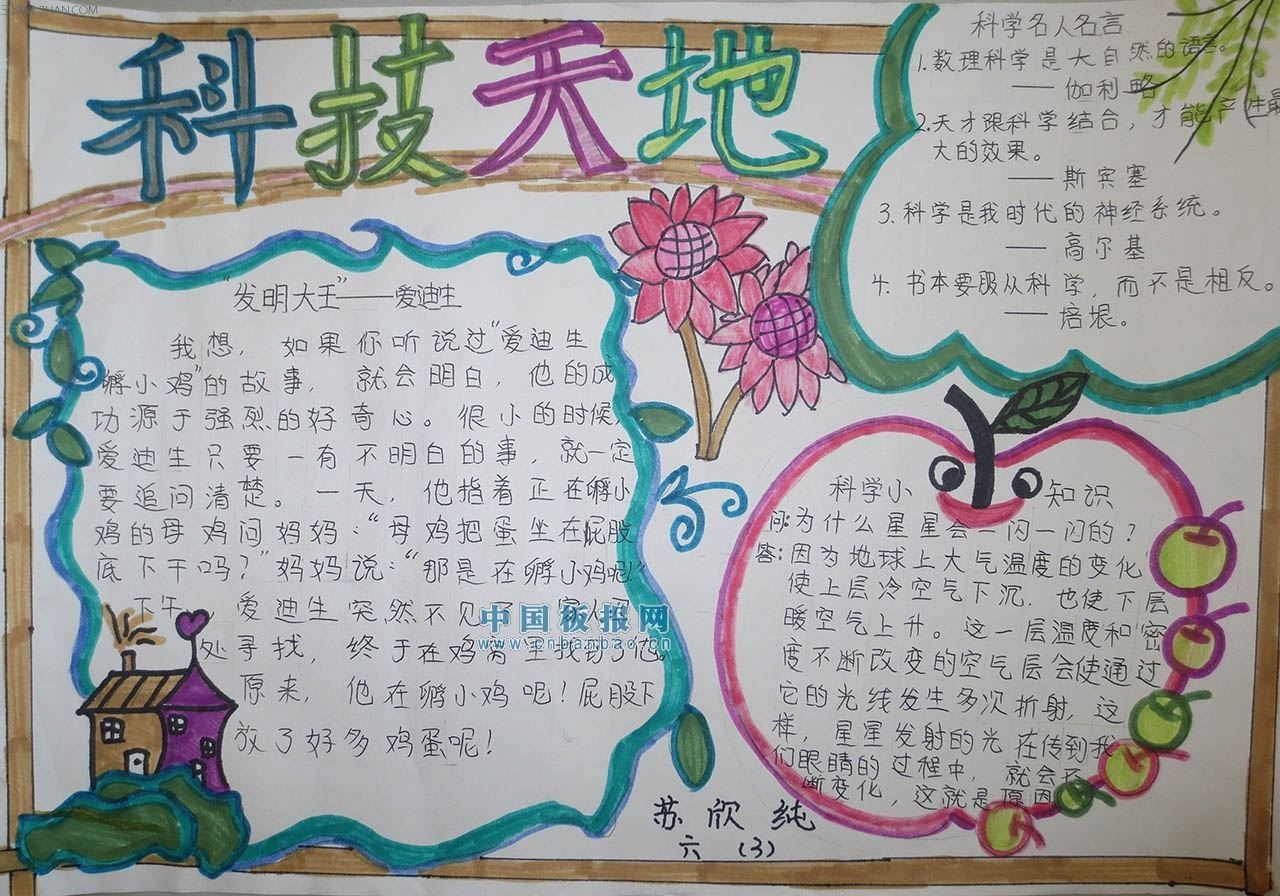 科技天地
"发明大王"——爱迪生
我想，如果你听说过"爱迪生
孵小鸡"的故事，就会明白，他的成
功源于强烈的好奇心。很小的时候，
爱迪生只要一有不明白的事，就一定
要追问清楚。一天，他指着正在孵小
鸡的母鸡问妈妈："母鸡把蛋坐在屁股
底下干吗？"妈妈说："那是在孵小鸡呢！"
下午，爱迪生突然不见了，家人
处寻找，终于在鸡窝里找到了他。
原来，他在孵小鸡呢！屁股下
放了好多鸡蛋呢！
科学名人名言
1.数理科学是大自然的语言。
——伽利略
2.天才跟科学结合，才能产生最
大的效果。
——斯宾塞
3.科学是我时代的神经系统。
——高尔基
4.书本要服从科学，而不是相反。
——培根。
科学小知识
问:为什么星星会一闪一闪的？
答:因为地球上大气温度的变化
使上层冷空气下沉，也使下层
暖空气上升。这一层温度和密
度不断改变的空气层会使通过
它的光线发生多次折射，这
样，星星发射的光在传到我
们眼睛的过程中，就会不
断变化，这就是原因
苏欣纯
六（3）
中国板报网
www.cnbanbao.cn